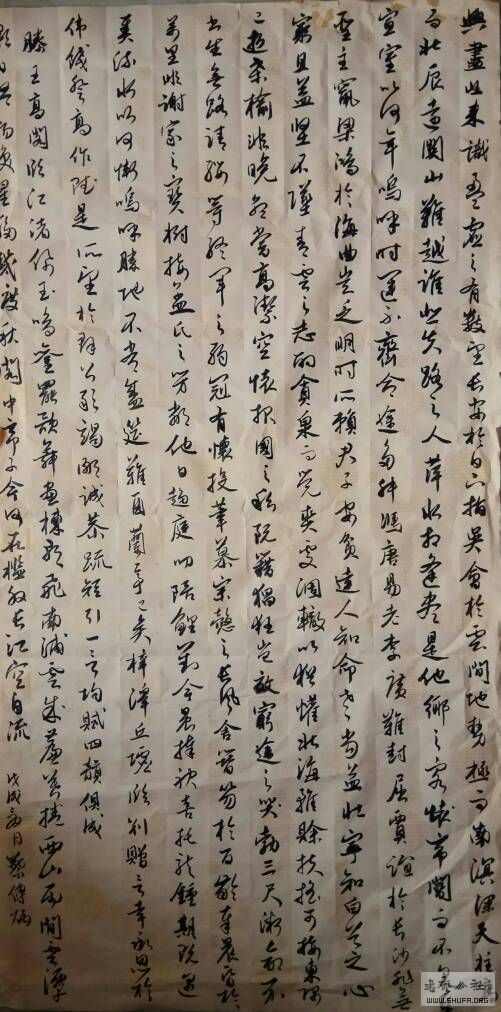 興盡悲來識盈虛之有數望長安於日下指吳會於雲間地勢極而南溟深天柱
而北辰遠關山難越誰悲失路之人萍水相逢盡是他鄉之客懷帝閽而不
宣室以何年嗚呼時運不齊命途多舛馮唐易老李廣難封屈賈誼於長沙非無
聖主竄梁鴻於海曲豈乏明時所賴君子安貧達人知命老當益壯寧知白首之心
窮且益堅不墜青雲之志酌貪泉而覺爽處涸轍以猶懽北海雖賒扶搖可接東隅
已逝桑榆非晚孟嘗高潔空懷報國之情阮籍猖狂豈效窮途之哭勃三尺微命
書生無路請纓等終軍之弱冠有懷投筆慕宗愨之長風舍簪笏於百齡奉晨昏於
萬里非謝家之寶樹接孟氏之芳鄰他日趨庭叨陪鯉對今晨捧袂喜托龍鍾期既遇
奏流水以何慚嗚呼勝地不常盛筵難再蘭亭已矣梓澤丘墟臨別贈言幸承恩於
偉餞登高作賦是所望於群公敢竭鄙誠恭疏短引一言均賦四韻俱成
滕王高閣臨江渚佩玉鳴鑾罷歌舞畫棟朝飛南浦雲珠簾暮捲西山雨閒雲潭
影日悠悠物換星移幾度秋閣中帝子今何在檻外長江空自流
戊戌月蔡傳炳
WWW.SHUFA.ORG